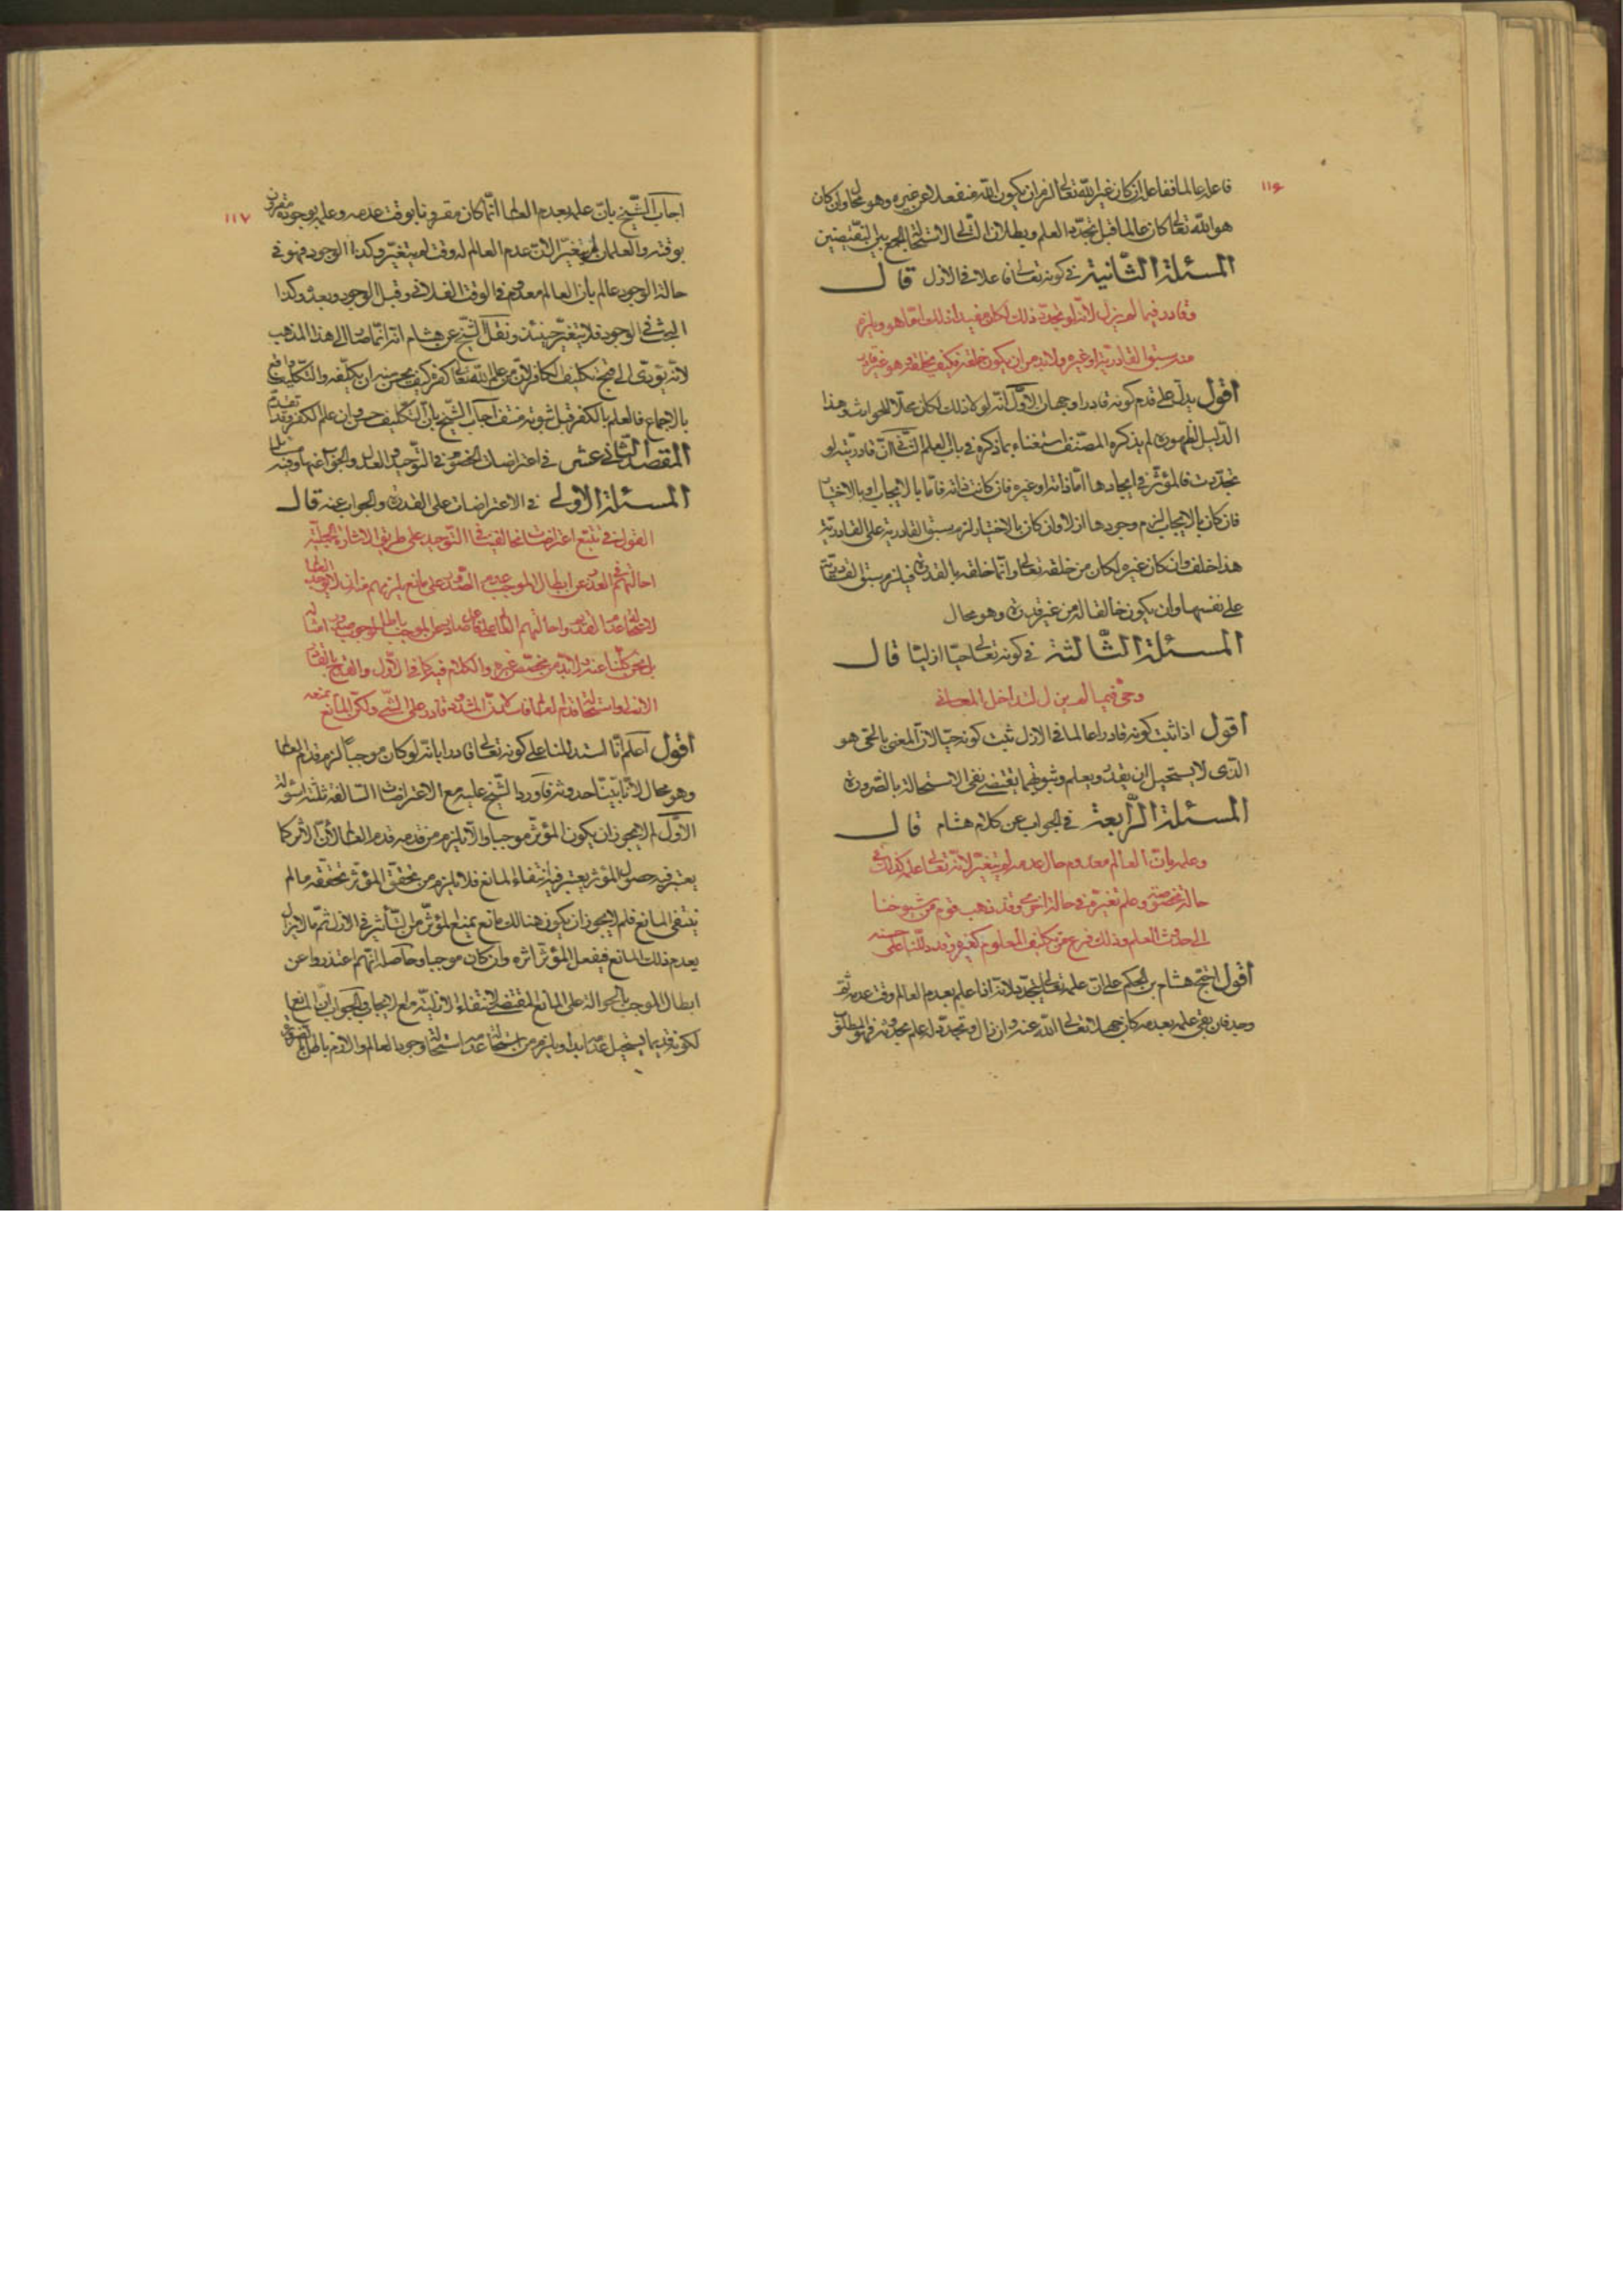 ١١٦
فاعله عالما ففاعله ان كان غير الله تعالى لزم ان يكون الله منفعلا عن غيره وهو محال وان كان
هو الله تعالى كان عالما قبل تجدد العلم وبطلان التالى لاستحالة الجمع بين النقيضين
المسئلة الثانية فى كونه تعالى فاعلا فى الازل قال
وقادر فيما لم يزل لانه لو تجدد ذلك لكان مفيدا ذلك اما هو ويلزم
منه سبق القادرية او غيره ولابد من ان يكون خلقه فكيف يخلقه وهو غير قادر
اقول يدل على قدم كونه قادرا وجهان الاول انه لولا ذلك لكان محلا للحوادث وهذا
الدليل لظهوره لم يذكره المصنف استغناء بما ذكره فى باب العلم الثانى ان قادريته لو
تجددت فالمؤثر فى ايجادها اما ذاته او غيره فان كانت ذاته فاما بالايجاب او بالاختيار
فان كان بالايجاب لزم وجودها ازلا وان كان بالاختيار لزم سبق القادرية على القادرية
هذا خلف وان كان غيره لكان من خلقه تعالى وانما خلقه بالقدرة فيلزم سبق القادرية
على نفسها وان يكون خالقا له من غير قدرة وهو محال
المسئلة الثالثة فى كونه تعالى حيا ازليا قال
وحى فيما لم يزل لتداخل المعانى
اقول اذا ثبت كونه قادرا عالما فى الازل ثبت كونه حيا لان المعنى بالحى هو
الذى لا يستحيل ان يقدر ويعلم وثبوتهما يقتضى نفى الاستحالة بالضرورة
المسئلة الرابعة فى الجواب عن كلام هشام قال
وعلمه بان العالم معدوم حال عدمه لم يتغير لانه تعالى علم كذلك فى
حالة مخصوصة وعلم تغيره فى حالة اخرى وقد ذهب قوم من شيوخنا
الى حدوث العلم وذلك فرع من تكليف المعلوم كفره وقد دللنا على حسنه
اقول احتج هشام بن الحكم على ان علمه تعالى يتجدد بلانه اذا علم بعدم العالم وقت عدمه ثم
وجد فان بقى علمه بعدمه كان جهلا تعالى الله عنه وان زال وتجدد له علم بوجوده فهو المطلوب
١١٧
اجاب الشيخ بان علمه بعدم العالم انما كان مقرونا بوقت عدمه وعلمه بوجوده مقرون
بوقته والعلمان لم يتغيرا لان عدم العالم له وقت لم يتغير وكذا الوجود فهو فى
حالة الوجود عالم بان العالم معدوم فى الوقت الفلانى وقبل الوجود وبعده وكذا
البحث فى الوجود فلا يتغير حينئذ ونقل الشيخ عن هشام انه انما صار الى هذا المذهب
لانه يؤدى الى قبح تكليف الكافر لان من علم الله تعالى كفره كيف يحسن منه ان يكلفه والتكليف واقع
بالاجماع فالعلم بالكفر قبل ثبوته منتف اجاب الشيخ بان التكليف حسن وان علم الكفر وقد تقدم
المقصد الثانى عشر فى اعتراضات الخصوم فى التوحيد والعدل والجواب عنها وفيه مسائل
المسئلة الاولى فى الاعتراضات على القدرة والجواب عنه قال
القول فى تتبع اعتراضات مخالفينا فى التوحيد على طريق الاشارة الجملية
احالتهم فى العدول عن ابطال الموجب عدم الصدور على مانع يلزمهم منه ان لا يوجد العالم
لاستحالة عدم القديم واحالتهم العالم على فاعل صادر عن الموجب باطل لوجوب صدور امثاله
بل نحن كلنا عنه ولابد من مخصص غيره والكلام فيه كما فى الاول والقدح بالقادر
الازلى واستحالة قدم العالم فاسد لان المشدود قادر على المشى ولكن المانع يمنعه
اقول اعلم انا استدللنا على كونه تعالى قادرا بانه لو كان موجبا لزم قدم العالم
وهو محال لانا بينا حدوثه فاورد الشيخ عليه مع الاعتراضات السالفة ثلثة اسولة
الاول لم لا يجوز ان يكون المؤثر موجبا ولا يلزم من قدمه قدم العالم لان الاثر كما
يعتبر فيه حصول المؤثر يعتبر فيه انتفاء المانع فلا يلزم من تحقق المؤثر تحققه ما لم
ينتفى المانع فلم لا يجوز ان يكون هنالك مانع يمنع المؤثر من التأثير فى الازل ثم ما لا يزال
يعدم ذلك المانع فيفعل المؤثر اثره وان كان موجبا وحاصله انهم اعتذروا عن
ابطال الموجب بالحوالة على المانع المقتضى لانتفاء الازلية مع الايجاب والجواب ان المانع
لكونه قديما يستحيل عدمه ابدا ويلزم من استحالة عدمه استحالة وجود العالم واللازم باطل بالضرورة